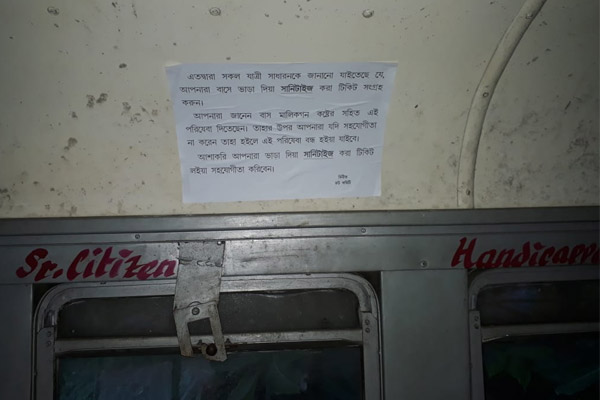 এতদ্বারা সকল যাত্রী সাধারনকে জানানো যাইতেছে যে,
আপনারা বাসে ভাড়া দিয়া সানিটাইজ করা টিকিট সংগ্রহ
করুন।
আপনারা জানেন বাস মালিকগন কষ্টের সহিত এই
পরিষেবা দিতেছেন। তাহার উপর আপনারা যদি সহযোগীতা
না করেন তাহা হইলে এই পরিষেবা বন্ধ হইয়া যাইবে।
আশাকরি আপনারা ভাড়া দিয়া সানিটাইজ করা টিকিট
লইয়া সহযোগীতা করিবেন।
Sr. Citizen
Handicapp